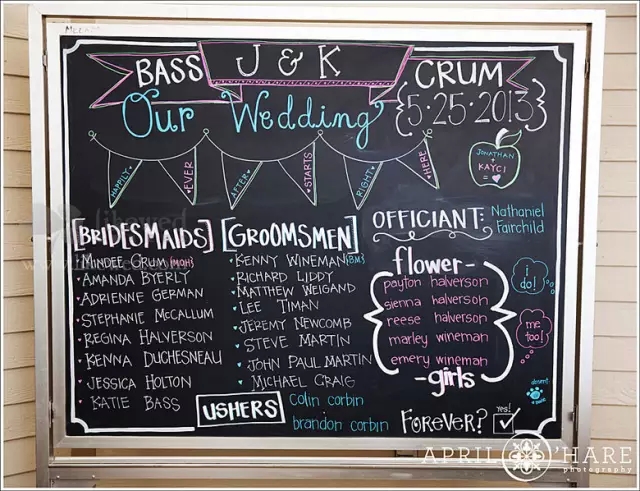 BASS J & K CRUM
Our Wedding {5·25·2013}
HAPPILY EVER AFTER STARTS RIGHT HERE
JONATHAN
+
KAYCI
= ♥
OFFICIANT: Nathaniel
Fairchild
[BRIDESMAIDS]
MINDEE CRUM (MOH)
AMANDA BYERLY
ADRIENNE GERMAN
STEPHANIE McCALLUM
REGINA HALVERSON
KENNA DUCHESNEAU
JESSICA HOLTON
KATIE BASS
[GROOMSMEN]
KENNY WINEMAN (B.M.)
RICHARD LIDDY
MATTHEW WEIGAND
LEE TIMAN
JEREMY NEWCOMB
STEVE MARTIN
JOHN PAUL MARTIN
MICHAEL CRAIG
flower-
payton halverson
sienna halverson
reese halverson
marley wineman
emery wineman
-girls
i do!
me too!
USHERS
Colin corbin
brandon corbin
FOREVER? yes!
APRIL O'HARE
photography